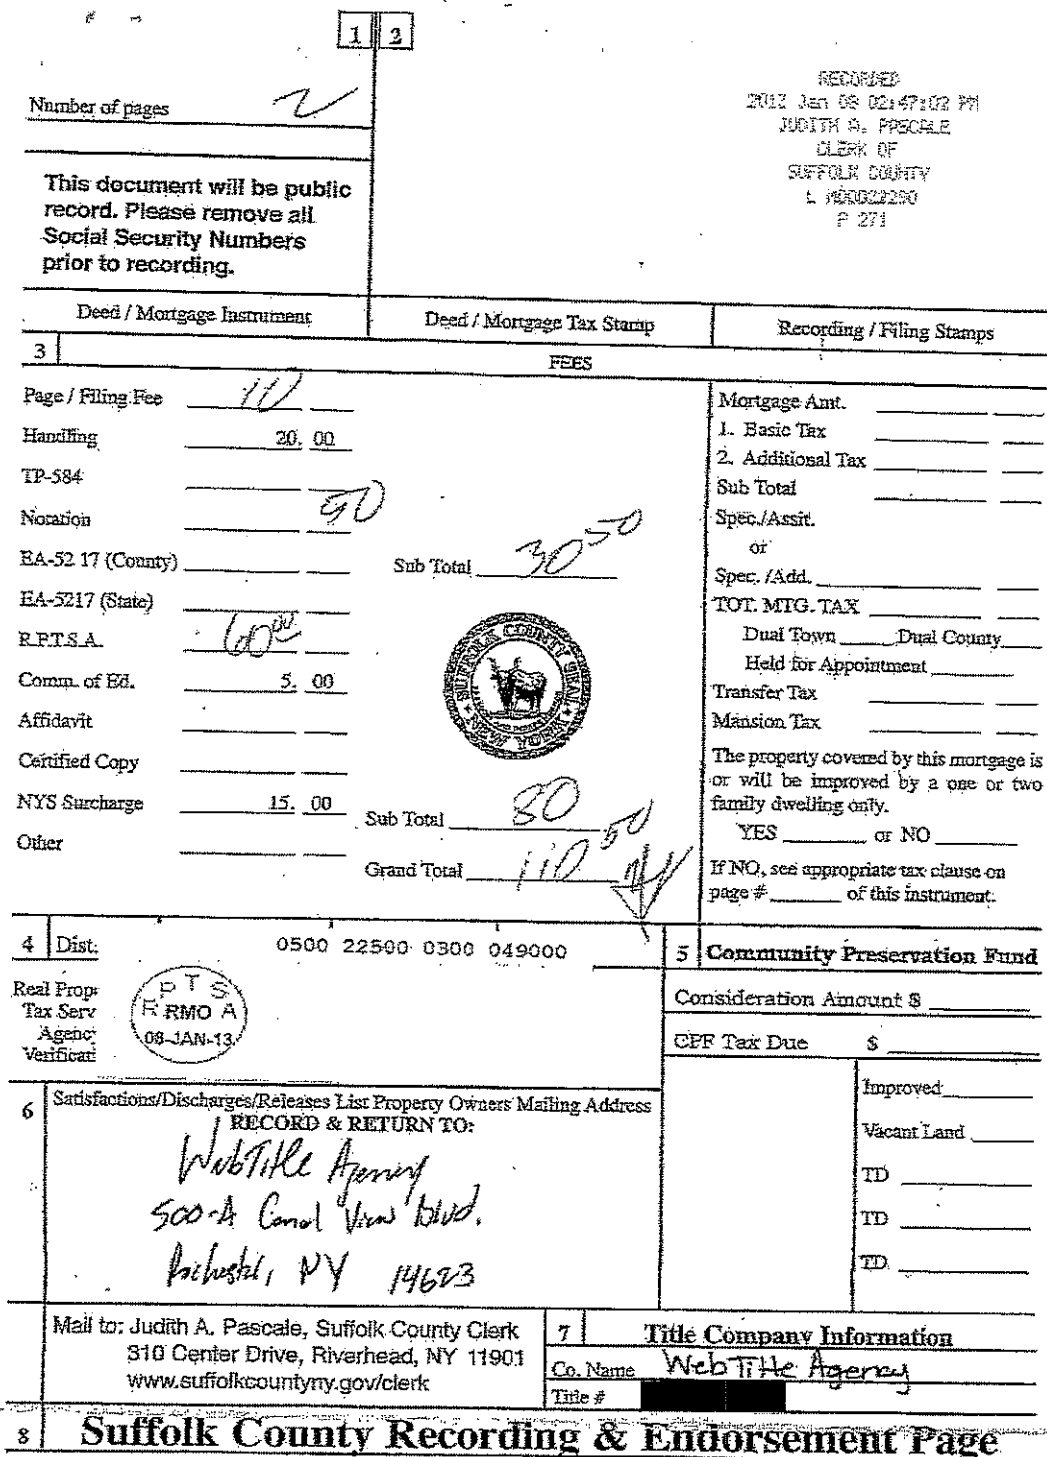 1 2
Number of pages 2
RECORDED
2013 Jan 08 02:47:02 PM
JUDITH A. PASCALE
CLERK OF
SUFFOLK COUNTY
L M00022290
P 271
This document will be public
record. Please remove all
Social Security Numbers
prior to recording.
Deed / Mortgage Instrument
Deed / Mortgage Tax Stamp
Recording / Filing Stamps
3
FEES
Page / Filing Fee 10
Handling 20. 00
TP-584
Notation 50
EA-52 17 (County)
Sub Total 30 50
EA-5217 (State)
R.P.T.S.A. 60 00
Comm. of Ed. 5. 00
Affidavit
Certified Copy
NYS Surcharge 15. 00
Sub Total 80
Other
Grand Total 110 50
SUFFOLK COUNTY SEAL
NEW YORK
Mortgage Amt.
1. Basic Tax
2. Additional Tax
Sub Total
Spec./Assit.
or
Spec. /Add.
TOT. MTG. TAX
Dual Town Dual County
Held for Appointment
Transfer Tax
Mansion Tax
The property covered by this mortgage is
or will be improved by a one or two
family dwelling only.
YES or NO
If NO, see appropriate tax clause on
page # of this instrument.
4 Dist. 0500 22500 0300 049000
Real Prop
Tax Serv
Agency
Verificati
R P T S A
RMO
08-JAN-13
5 Community Preservation Fund
Consideration Amount $
CPF Tax Due $
Improved
Vacant Land
TD
TD
TD
6 Satisfactions/Discharges/Releases List Property Owners Mailing Address
RECORD & RETURN TO:
WebTitle Agency
500-A Canal View blvd.
Rochester, NY 14623
Mail to: Judith A. Pascale, Suffolk County Clerk
310 Center Drive, Riverhead, NY 11901
www.suffolkcountyny.gov/clerk
7 Title Company Information
Co. Name WebTitle Agency
Title #
8 Suffolk County Recording & Endorsement Page